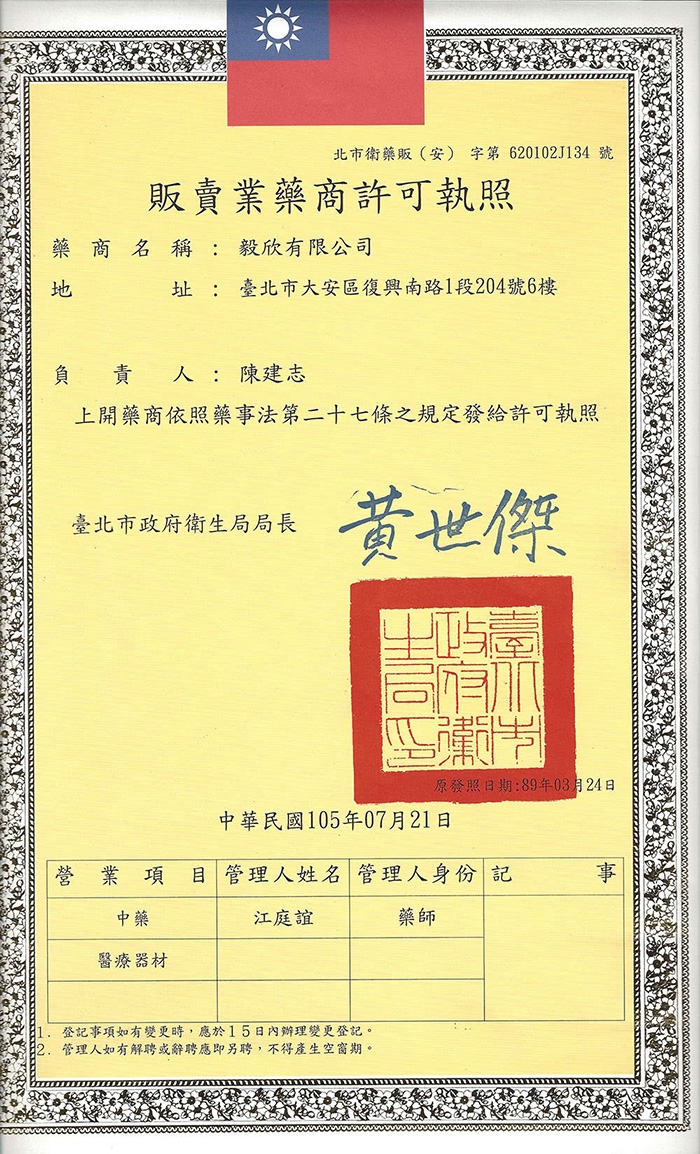 北市衛藥販(安) 字第 620102J134 號
販賣業藥商許可執照
藥商名稱：毅欣有限公司
地址：臺北市大安區復興南路1段204號6樓
負責人：陳建志
上開藥商依照藥事法第二十七條之規定發給許可執照
臺北市政府衛生局局長 黃世傑
臺北市政府衛生局印
原發照日期:89年03月24日
中華民國105年07月21日
營業項目 管理人姓名 管理人身份 記事
中藥 江庭誼 藥師
醫療器材
1. 登記事項如有變更時，應於15日內辦理變更登記。
2. 管理人如有解聘或辭聘應即另聘，不得產生空窗期。